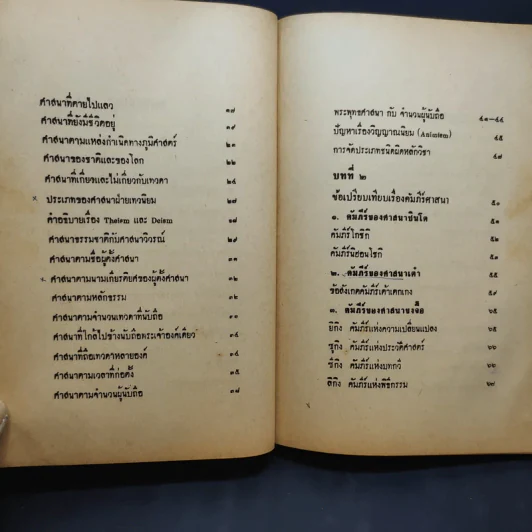 ศาสนาที่ตายไปแลว ๑๗
ศาสนาที่ยังมีชีวิตอยู่ ๑๙
ศาสนาตามแหล่งกำเนิดทางภูมิศาสตร์ ๒๑
ศาสนาของชาติและของโลก ๒๒
ศาสนาที่เกี่ยวและไม่เกี่ยวกับเทวดา ๒๔
ประเภทของศาสนาฝ่ายเทวนิยม
คำอธิบายเรื่อง Theism และ Deism
ศาสนาธรรมชาติกับศาสนาวิวรณ์ ๒๙
ศาสนาตามชื่อผู้ตั้งศาสนา
ศาสนาตามนามเกียรติยศของผู้ตั้งศาสนา ๓๒
ศาสนาตามหลักธรรม
ศาสนาตามจำนวนเทวดาที่นับถือ
ศาสนาที่ใกล้ไปข้างนับถือพระเจ้าองค์เดียว
ศาสนาที่ถือเทวดาหลายองค์
ศาสนาตามเวลาที่ก่อตั้ง
ศาสนาตามจำนวนผู้นับถือ ๓๘
พระพุทธศาสนา กับ จำนวนผู้นับถือ ๔๑—๔๔
ปัญหาเรื่องวิญญาณนิยม (Animism) ๔๕
การจัดประเภทชนิดผิดหลักวิชา ๔๗
บทที่ ๒
ข้อเปรียบเทียบเรื่องคัมภีร์ศาสนา ๕๑
๑. คัมภีร์ของศาสนาชินโต
คัมภีร์โกชิกิ ๕๒
คัมภีร์นิฮอนโชกิ ๕๓
๒. คัมภีร์ของศาสนาเต๋า ๕๕
ข้อสังเกตคัมภีร์เต๋าเตกเกง ๕๙
๓. คัมภีร์ของศาสนาขงจื๊อ ๖๕
ยิกิง คัมภีร์แห่งความเปลี่ยนแปลง ๖๕
ชูกิง คัมภีร์แห่งประวัติศาสตร์
ชิกิง คัมภีร์แห่งบทกวี ๖๖
ลิกิง คัมภีร์แห่งพิธีกรรม ๖๗